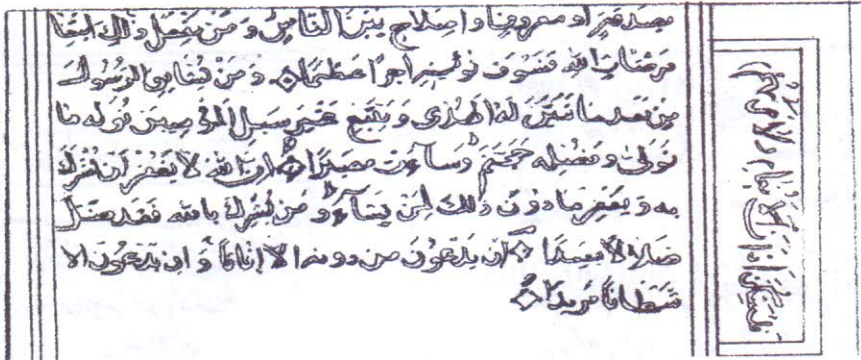 بصدقة او معروف او اصلاح بين الناس و من يفعل ذلك ابتغا
مرضات الله فسوف نؤتيه اجرا عظيما و من يشاقق الرسول
من بعد ما تبين له الهدى و يتبع غير سبيل المؤمنين نوله ما
تولى و نصله جهنم وساءت مصيرا ان الله لا يغفر ان يشرك
به و يغفر ما دون ذلك لمن يشاء و من يشرك بالله فقد ضل
ضلالا بعيدا ان يدعون من دونه الا اناثا و ان يدعون الا
شيطانا مريدا